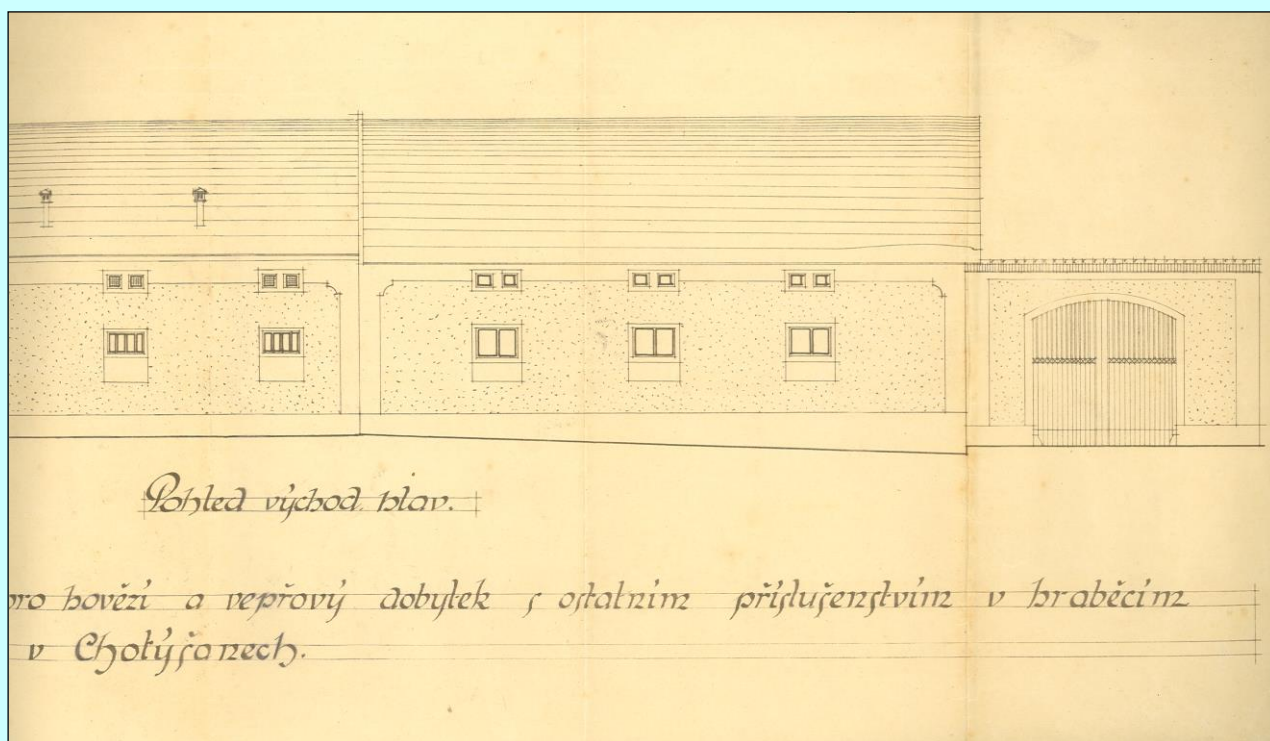 Pohled východ. hlav.
pro hovězí a vepřový dobytek s ostatním příslušenstvím v hraběcím
v Chotýšanech.